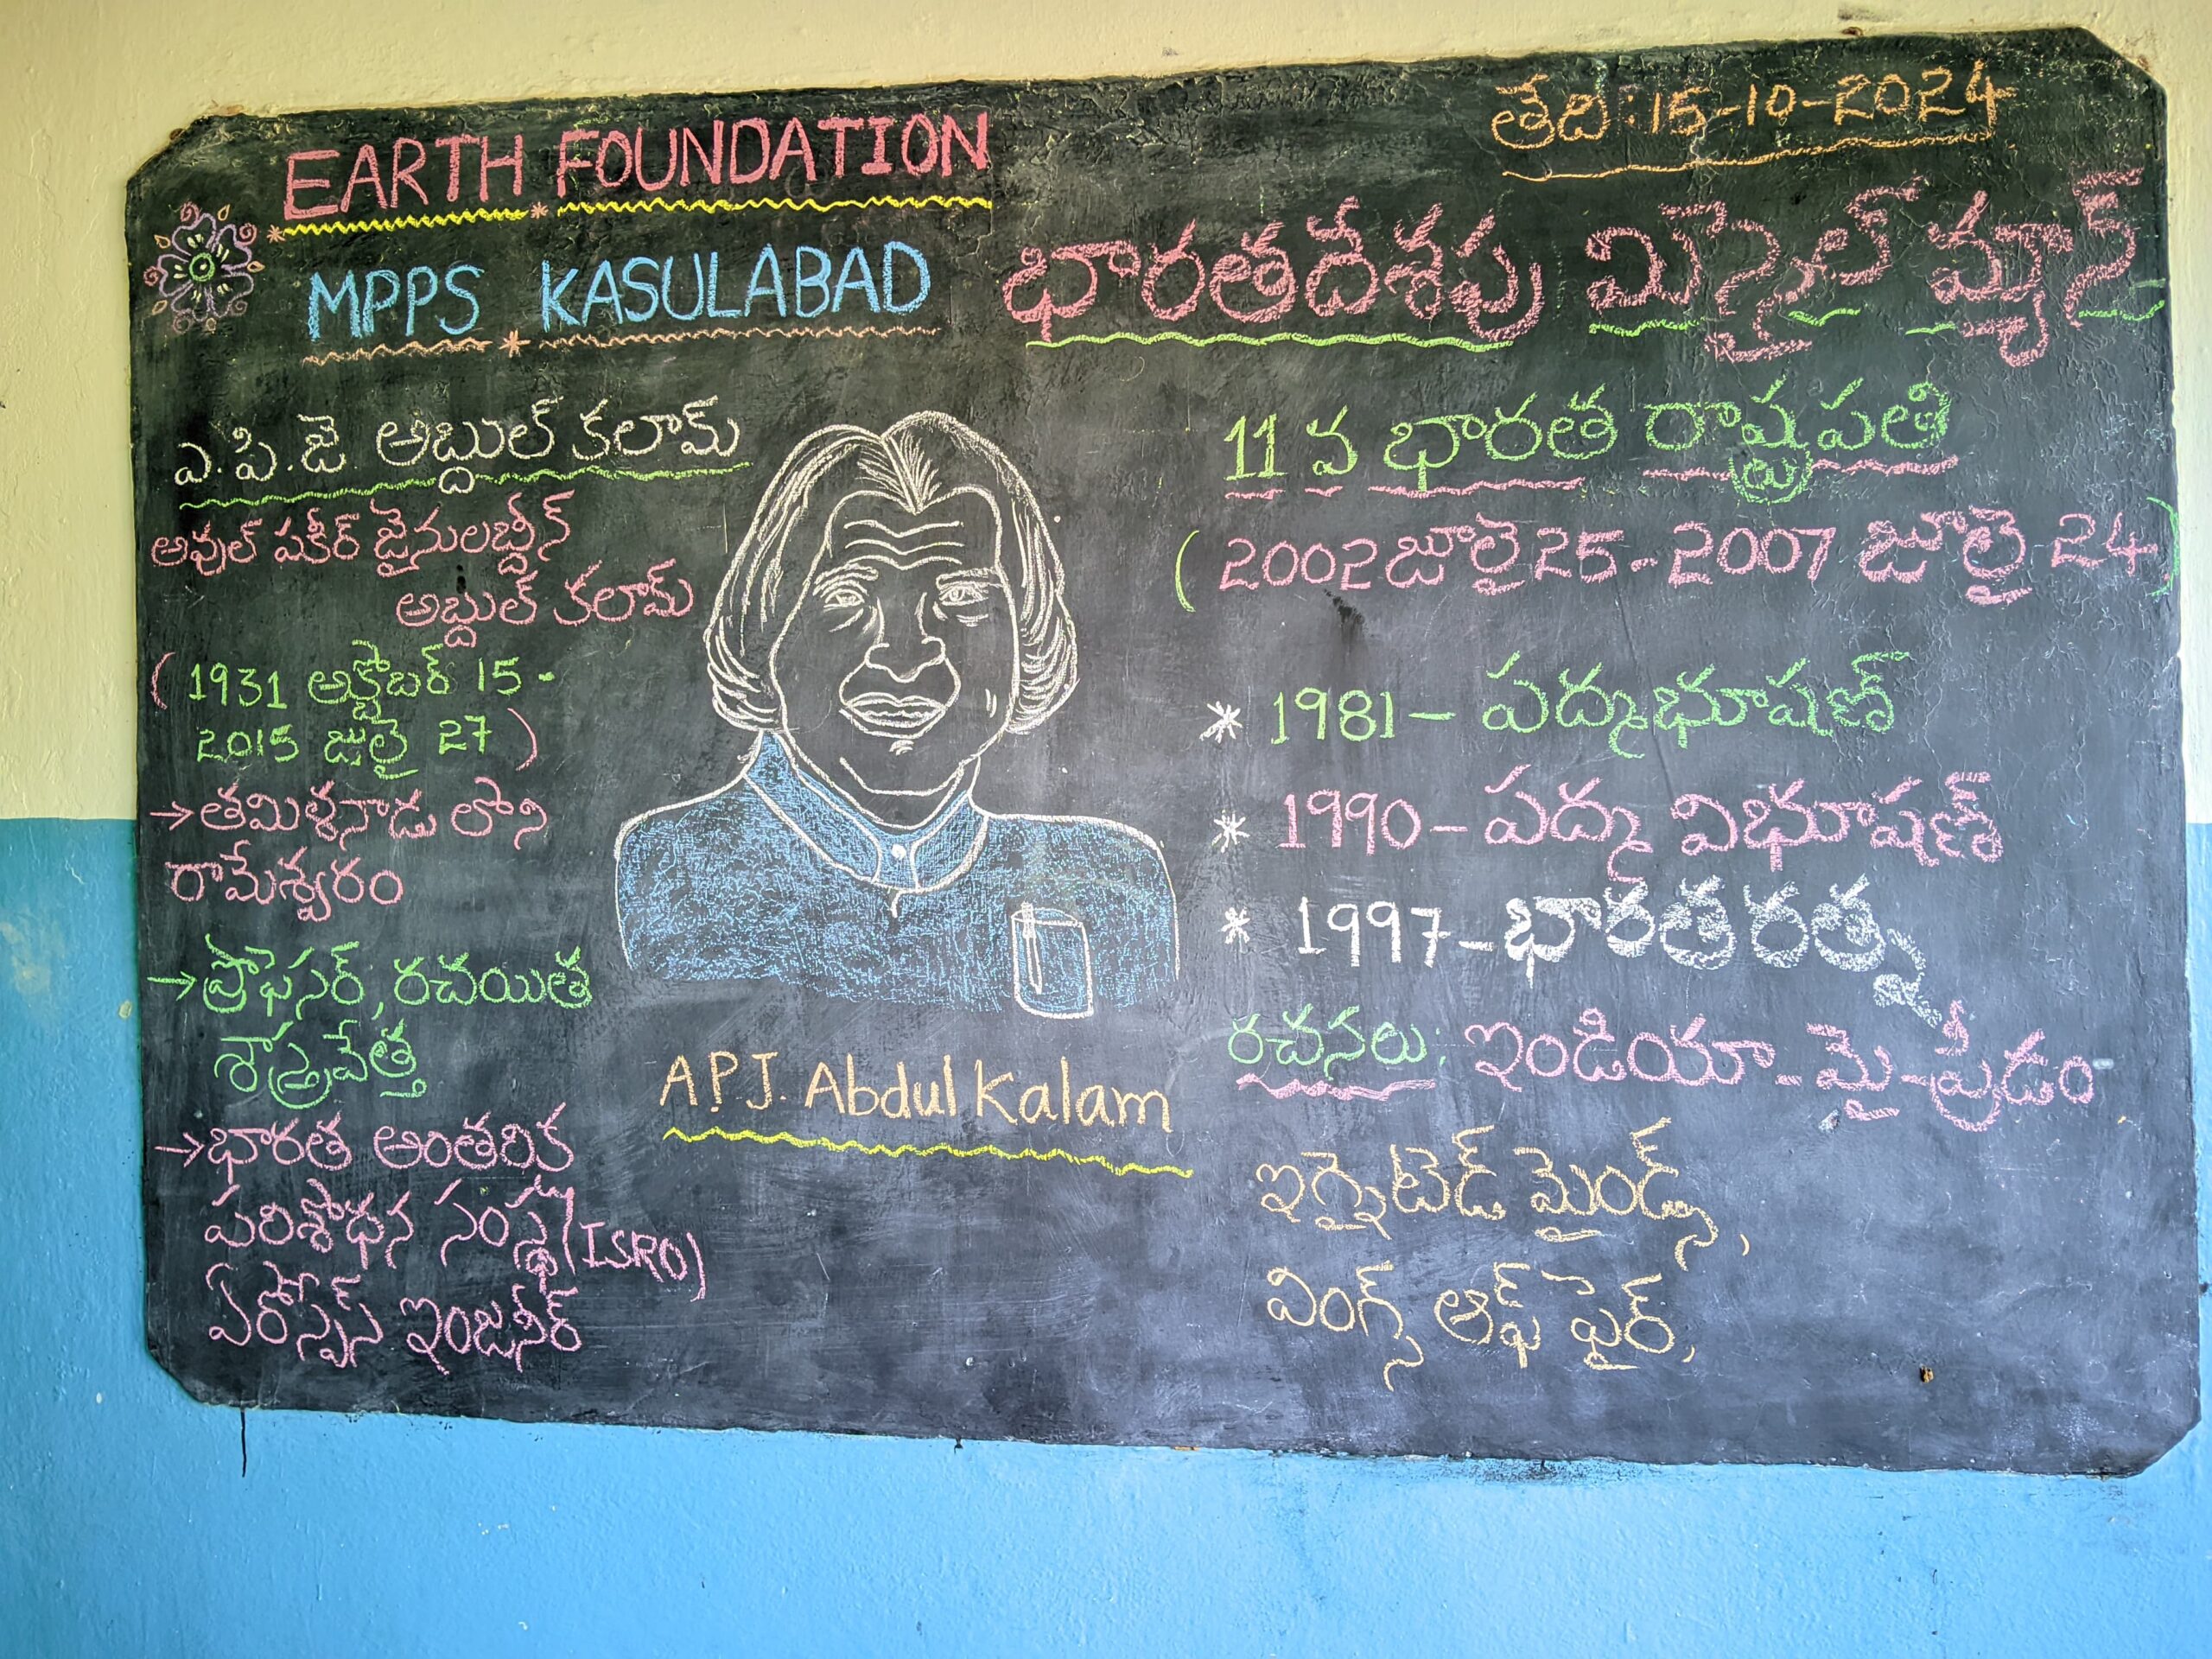 EARTH FOUNDATION
MPPS KASULABAD
తేది : 15-10-2024
భారతదేశపు మిస్సైల్ మ్యాన్
ఎ.పి.జె అబ్దుల్ కలామ్
అవుల్ పకీర్ జైనులబ్దీన్
అబ్దుల్ కలామ్
( 1931 అక్టోబర్ 15 -
2015 జులై 27 )
→తమిళనాడు లోని
రామేశ్వరం
→ప్రొఫెసర్, రచయిత
శాస్త్రవేత్త
→భారత అంతరిక్ష
పరిశోధన సంస్థ(ISRO)
ఏరోస్పేస్ ఇంజనీర్
A.P.J. Abdul Kalam
11 వ భారత రాష్ట్రపతి
( 2002 జూలై 25 - 2007 జూలై 24 )
* 1981 - పద్మభూషణ్
* 1990 - పద్మ విభూషణ్
* 1997 - భారతరత్న
రచనలు: ఇండియా - మై - ఫ్రీడం
ఇగ్నైటెడ్ మైండ్స్,
వింగ్స్ ఆఫ్ ఫైర్,